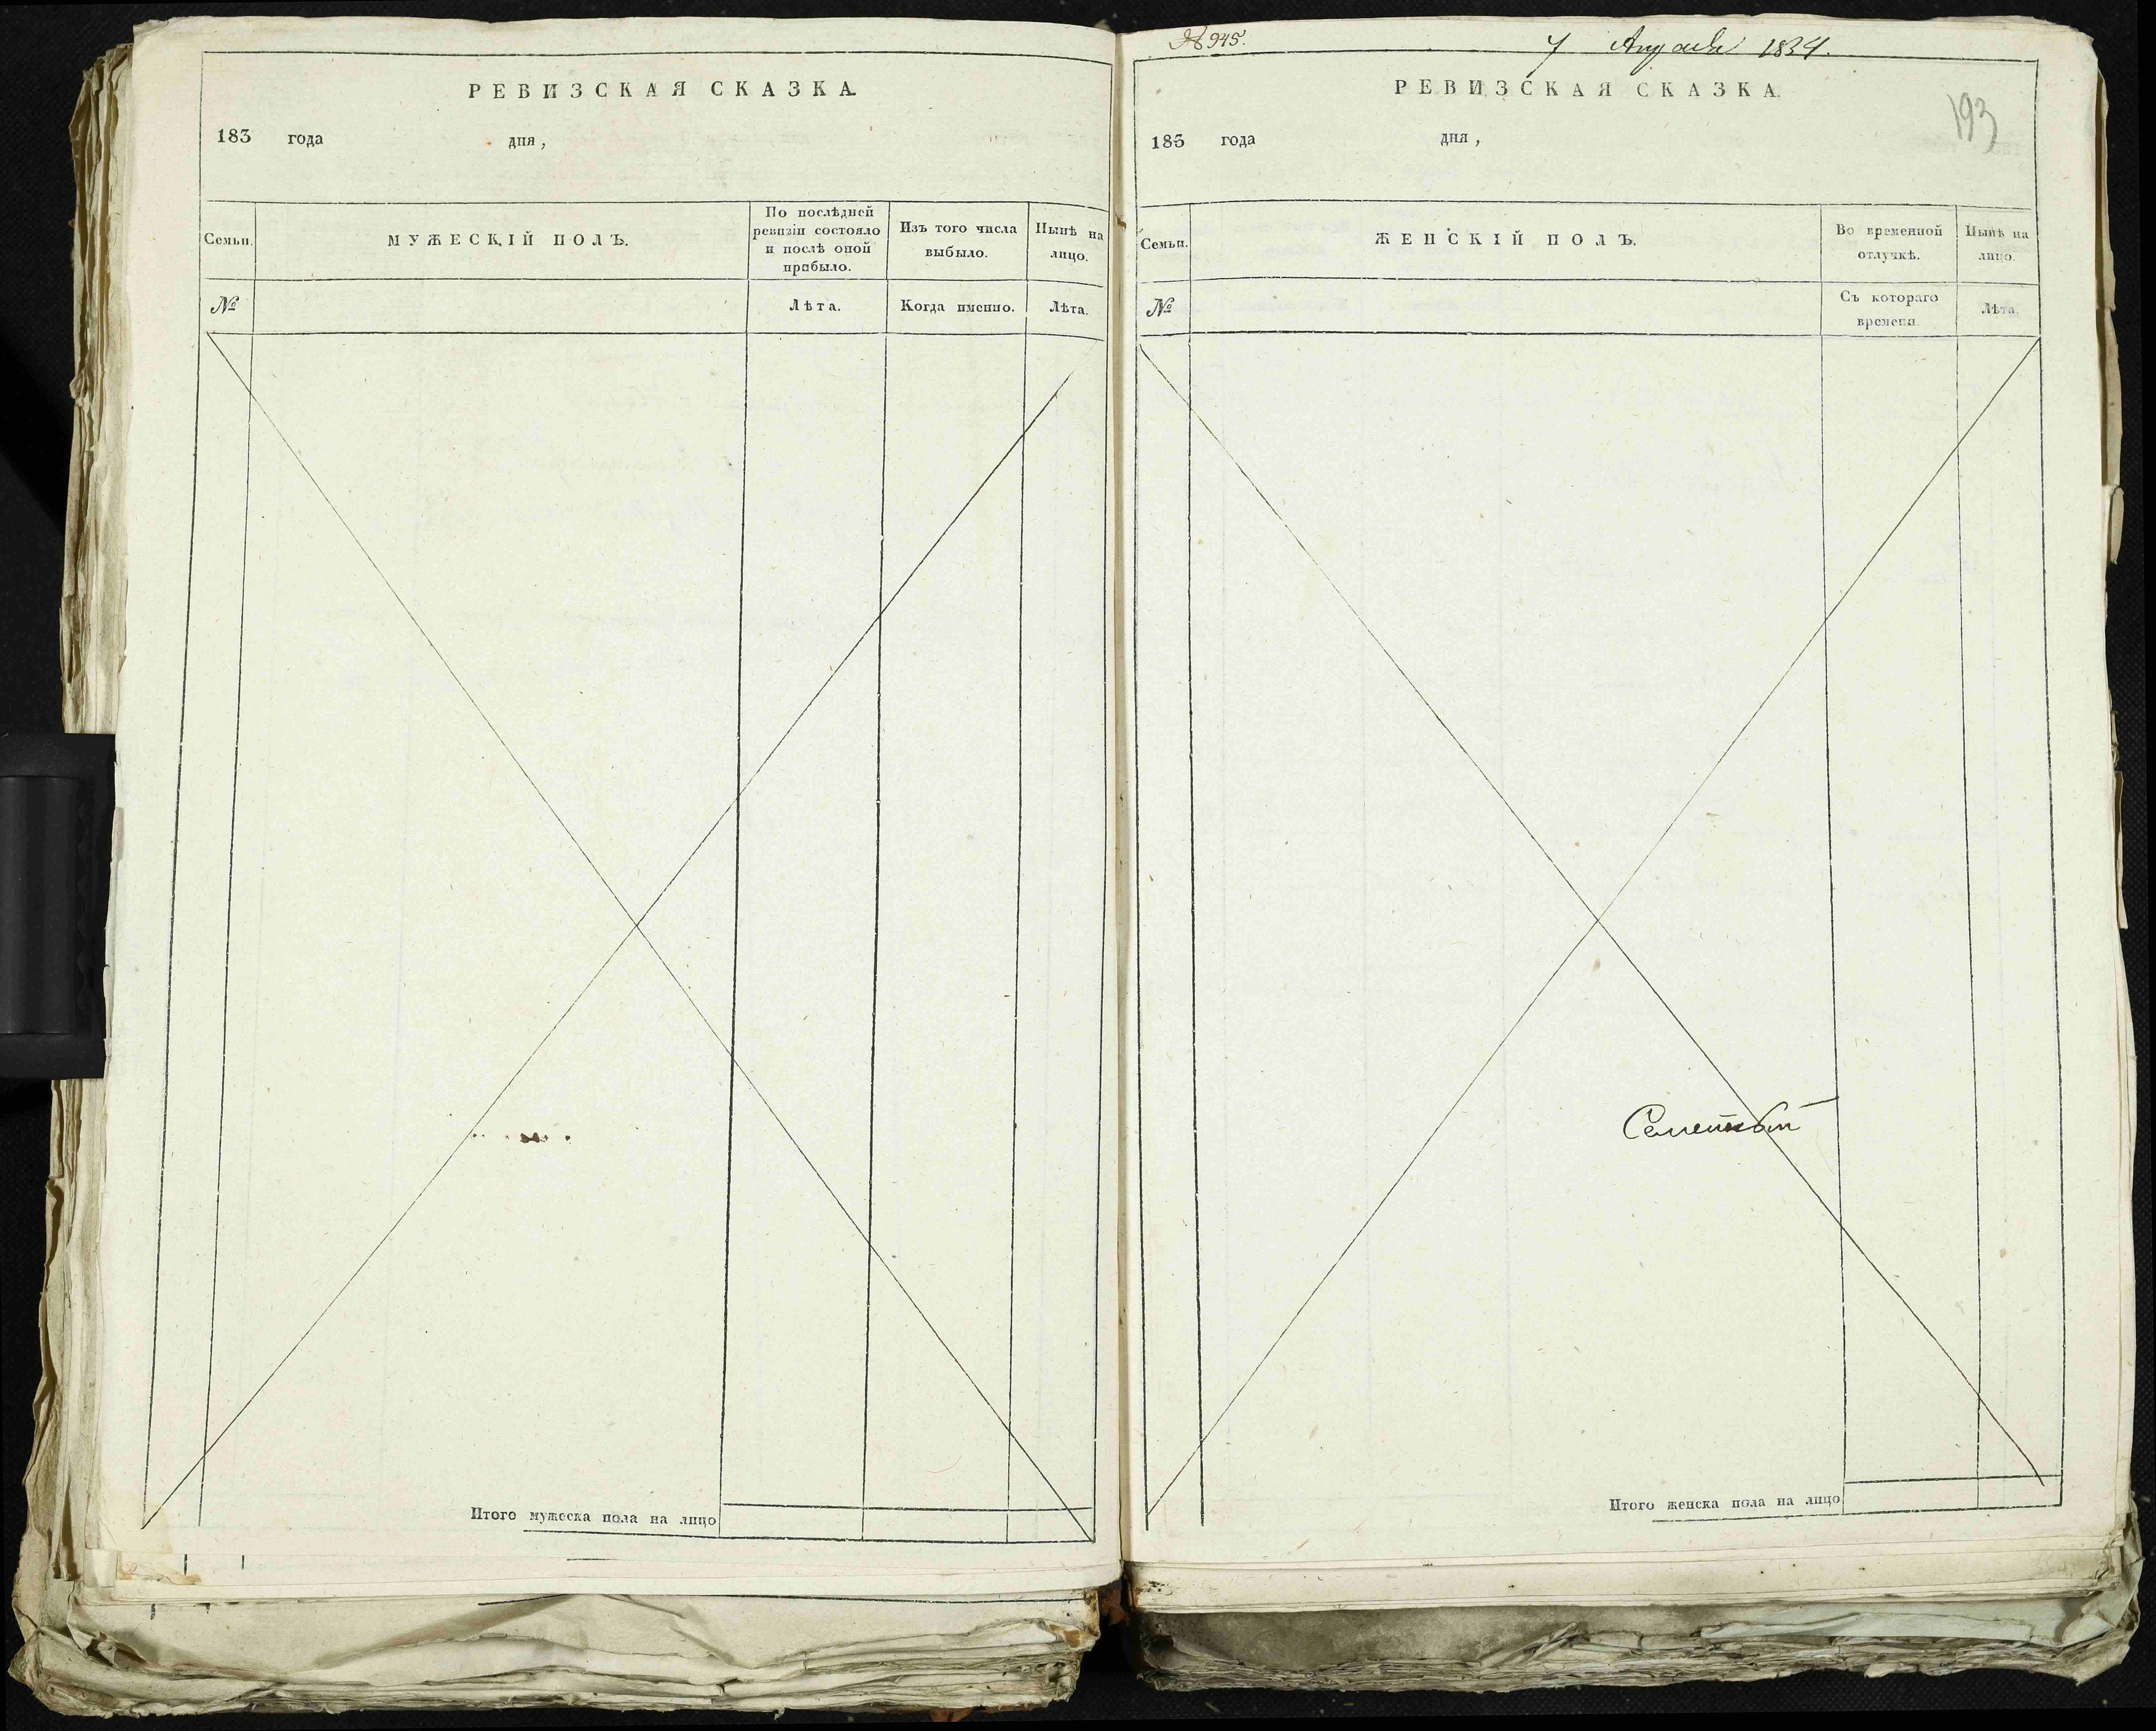 РЕВИЗСКАЯ СКАЗКА.
183 года дня,
Семьи.
МУЖЕСКІЙ ПОЛЪ.
По послѣдней
ревизіи состояло
и послѣ оной
прибыло.
Изъ того числа
выбыло.
Нынѣ на
лицо.
№
Лѣта.
Когда именно.
Лѣта.
Итого мужеска пола на лицо
№ 945.
7 Апреля 1834.
РЕВИЗСКАЯ СКАЗКА.
193
183 года дня,
Семьи.
ЖЕНСКІЙ ПОЛЪ.
Во временной
отлучкѣ.
Нынѣ на
лицо.
№
Съ котораго
времени
Лѣта.
Итого женска пола на лицо